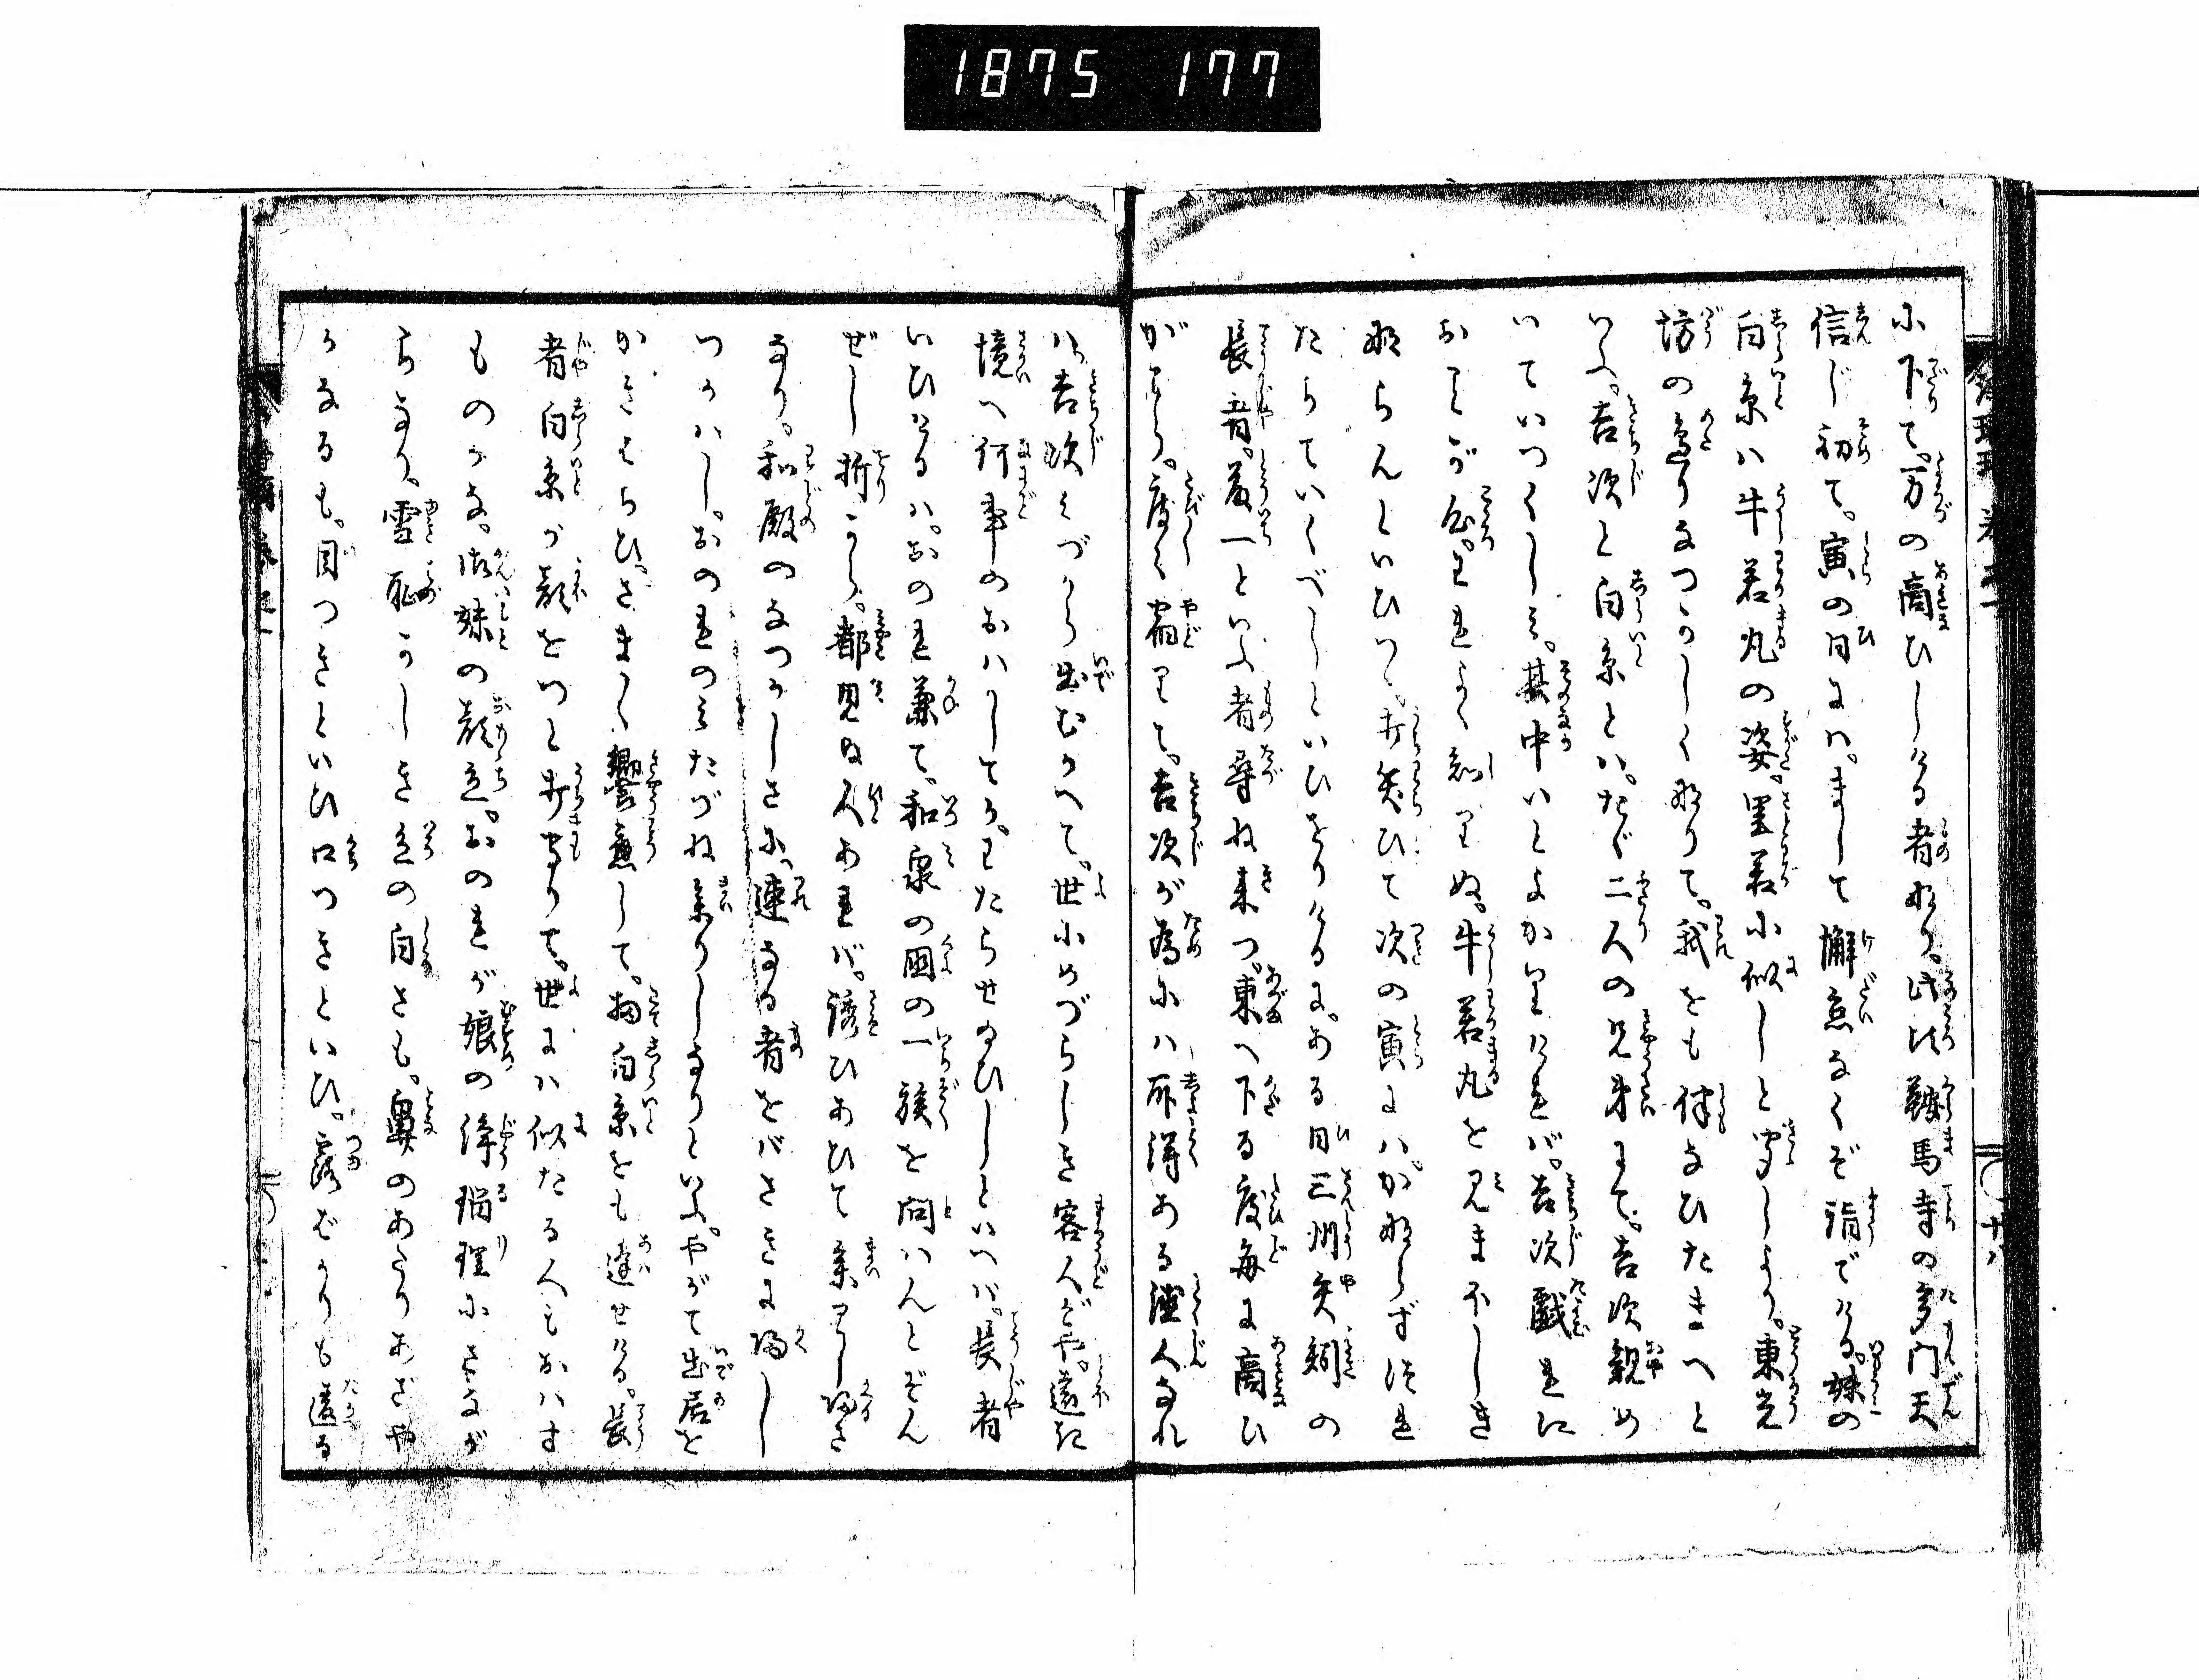 1875 177
に下りて。万の商ひしける者なり。此比鞍馬寺の多門天
信じ初て。寅の日には。まして懈怠なくぞ詣でける。妹の
白糸は牛若丸の姿。里若に似しと聞しより。東光
坊の辺りなつかしくなりて。我をも伴なひたまへと
いふ。吉次と白糸とは。たゞ二人の兄弟にて。吉次親め
いていつくしみ。其中いとよかりければ。吉次戯れに
おことが心。われよく知りぬ。牛若丸を見まほしき
ならんといひつゝ。打笑ひて次の寅には。かならずつれ
たちていくべしといひをりけるに。ある日三州矢矧の
長者。藤一といふ者尋ね来つ。東へ下る度毎に商ひ
がてら。度々宿りて。吉次が為には所得ある徳人なれ
ば。吉次みづから出むかへて。世にめづらしき客人ぞや。遠き
境へ何事のおはしてか。わたらせ給ひしといへば。長者
いひけるは。おのれ兼て。和泉の国の一族を問はんとぞん
ぜし折から。都見ぬ人あれば。誘ひあひて参りし帰さ
なり。和殿のなつかしさに。連なる者をばさきに帰し
つかはし。おのれのみたづね参りしなりといふ。やがて出居を
かきはらひ。さま〲饗応して。扨白糸をも逢せける。長
者白糸が顔をつと打守りて。世には似たる人もおはす
ものかな。御妹の顔立。おのれが娘の浄瑠理にさなが
らなり。雪耻かしき色の白さも。鼻のあたりあざや
かなるも。目つきといひ口つきといひ。露ばかりも違る